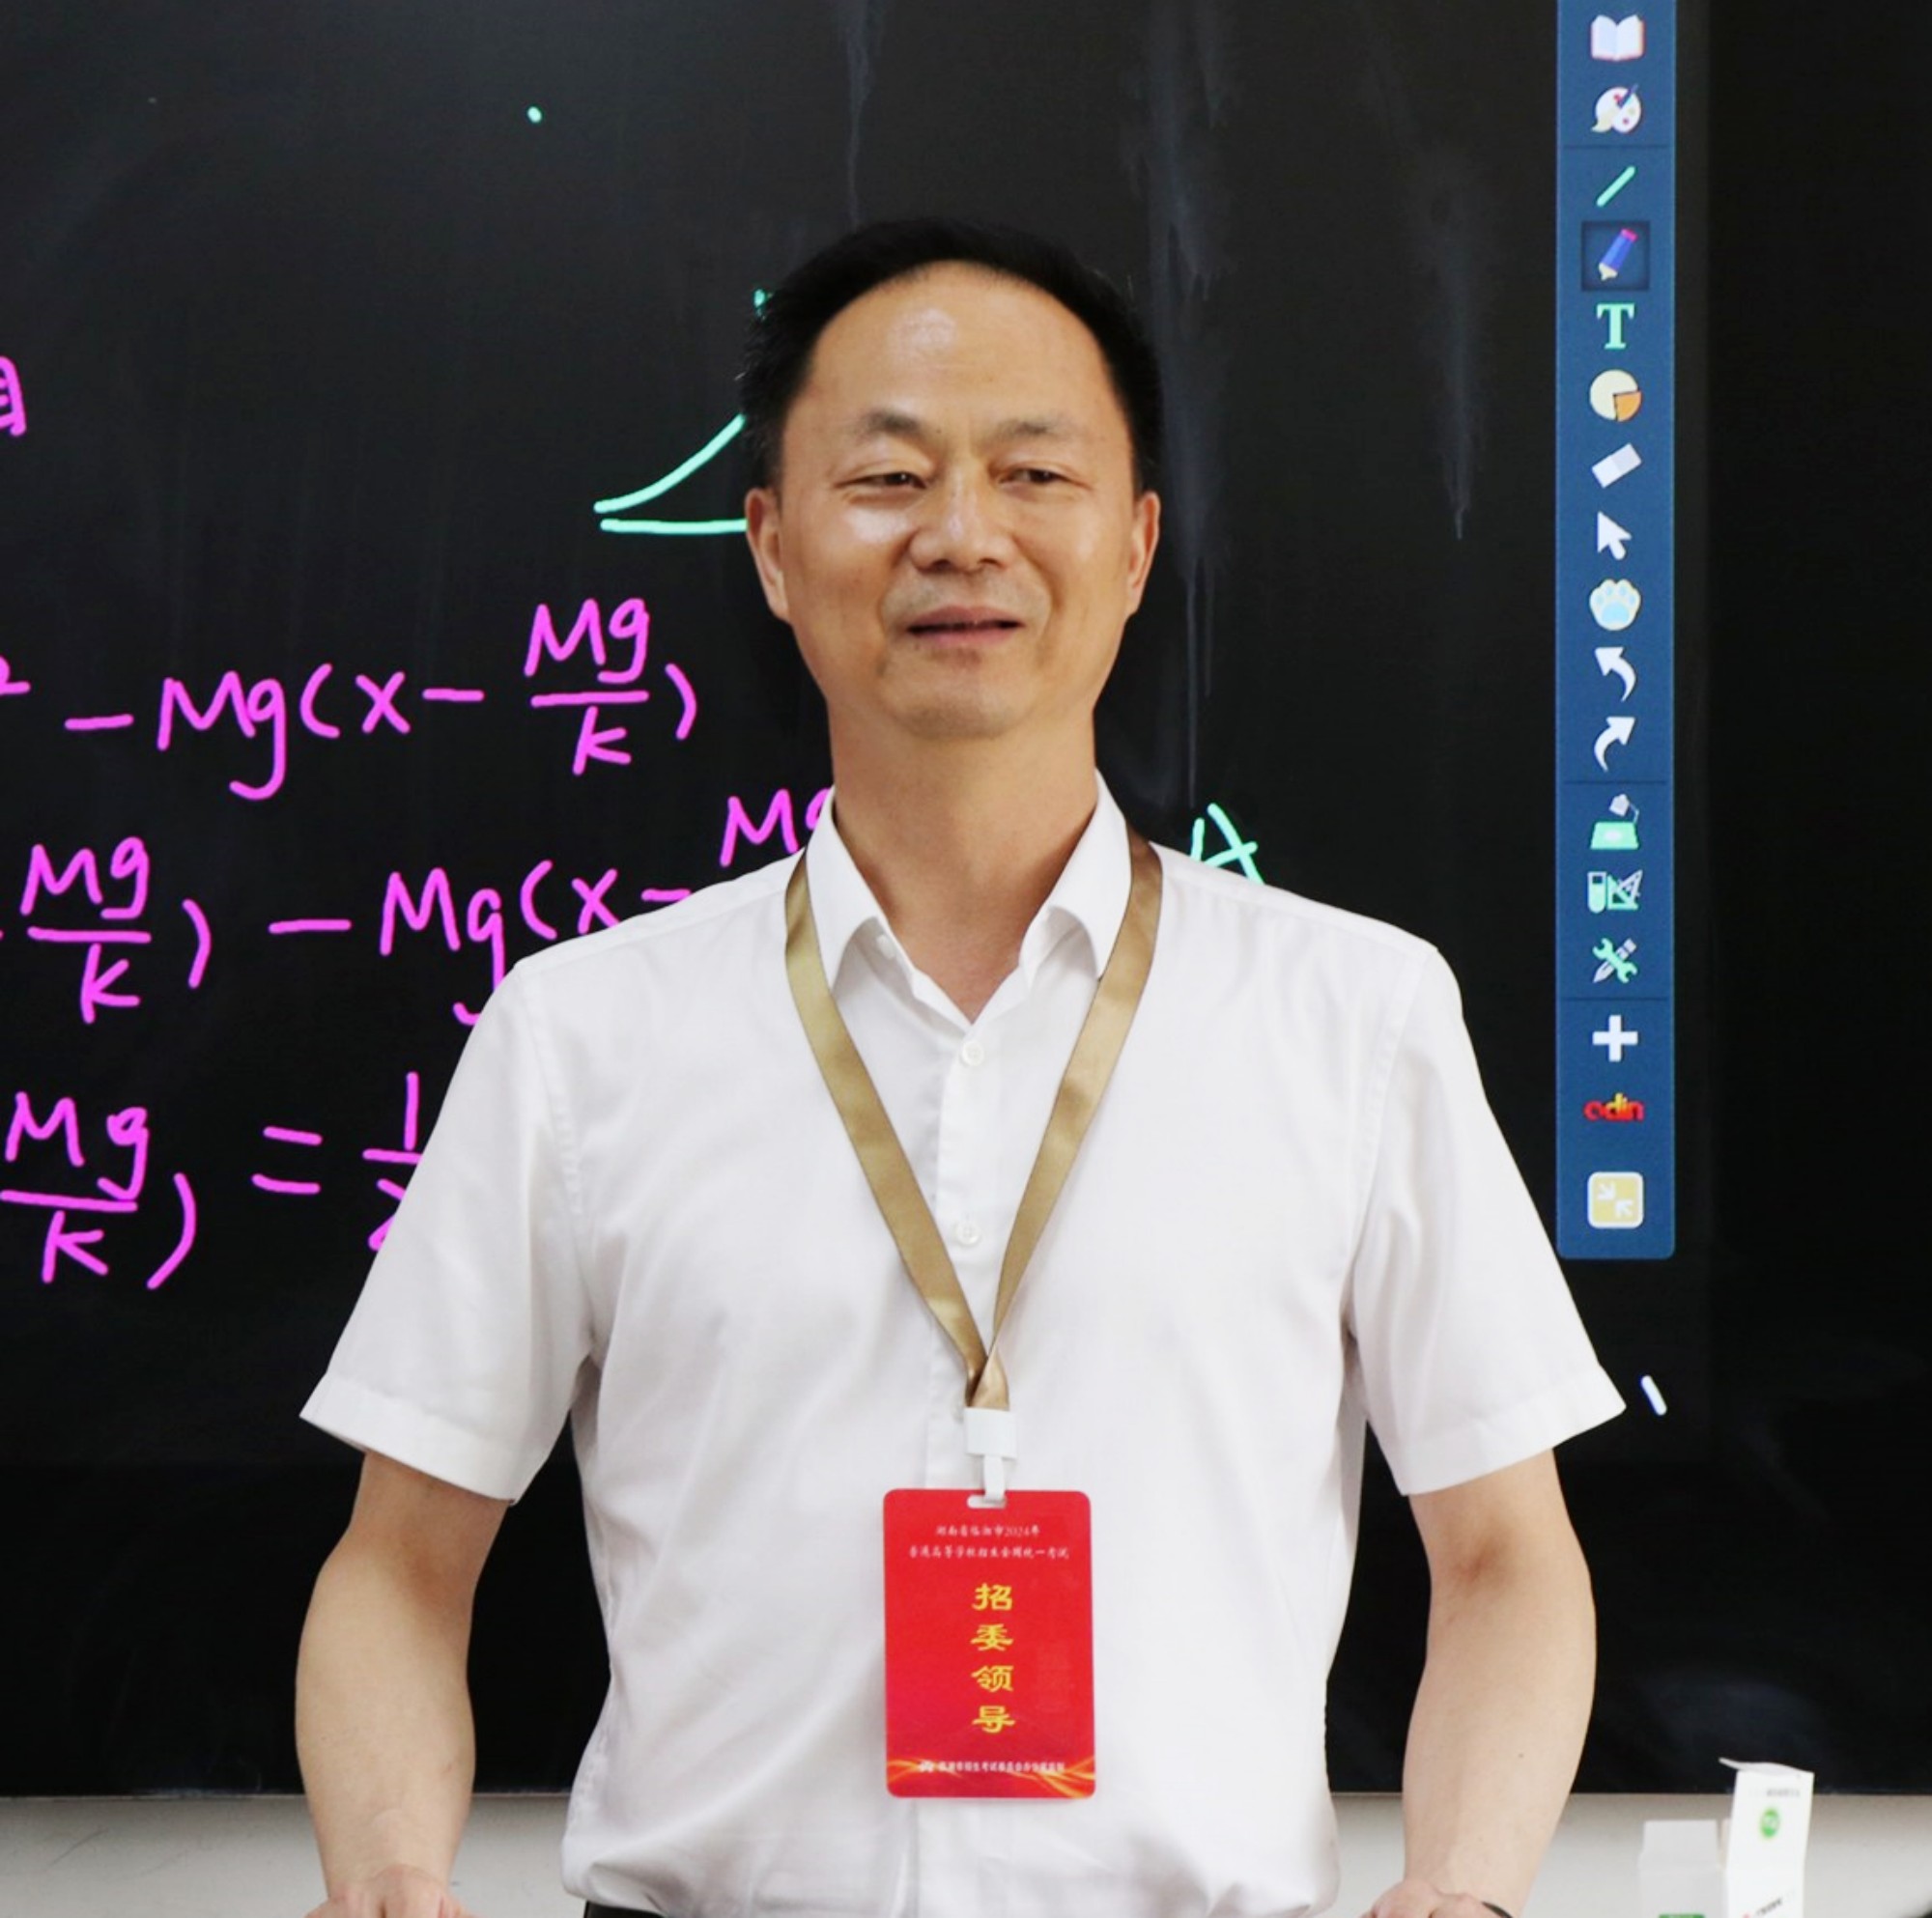 T
−Mg(x−Mg/k)
Mg/k)−Mg(x−
Mg/k)=
odin
湖南省临湘市2024年
普通高等学校招生全国统一考试
招
委
领
导